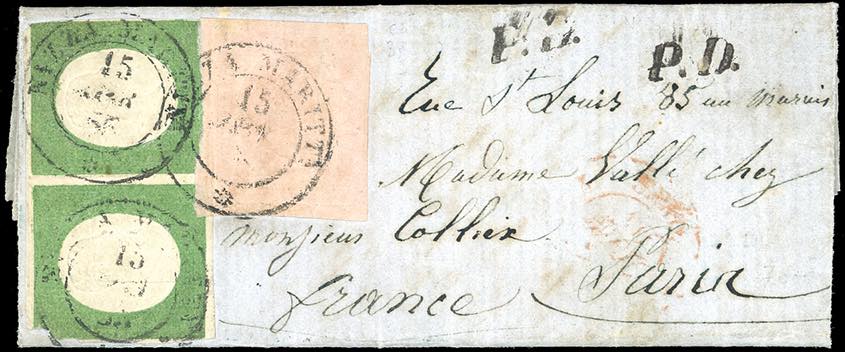 P.D.
P.D.
Rue St Louis 85 au marais
Madame Vallé chez
monsieur Collier
Paris
france
15
15
15